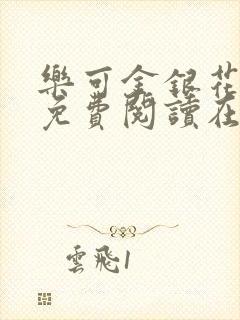 樂可金銀花
免費閱讀在
雲飛1